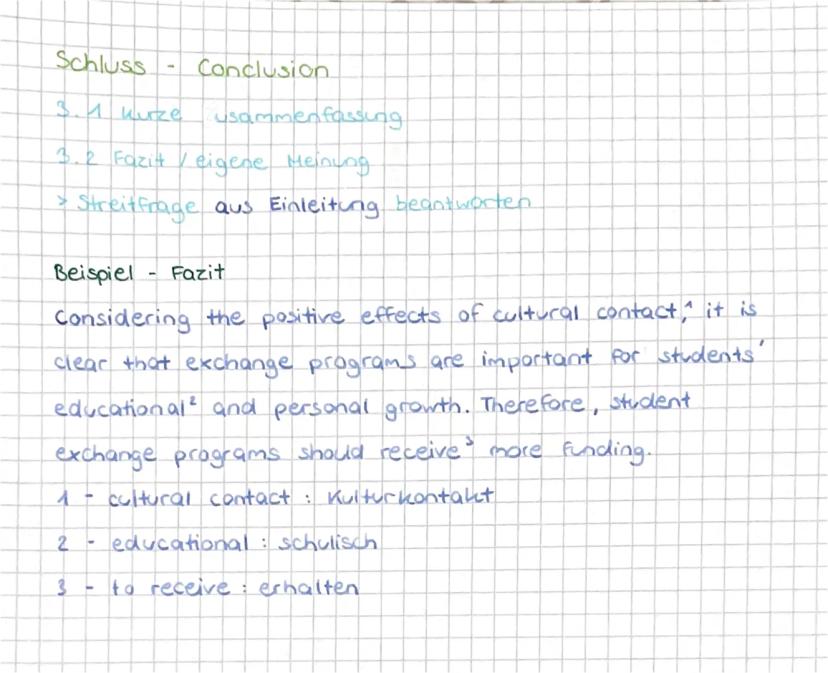 Schluss - Conclusion
3.1 kurze usammenfassung
3.2 Fazit / eigene Meinung
> Streitfrage aus Einleitung beantworten
Beispiel - Fazit
Considering the positive effects of cultural contact,¹ it is
clear that exchange programs are important for students'
educational² and personal growth. Therefore, student
exchange programs should receive³ more funding.
1 - cultural contact : Kulturkontakt
2 - educational : schulisch
3 - to receive : erhalten